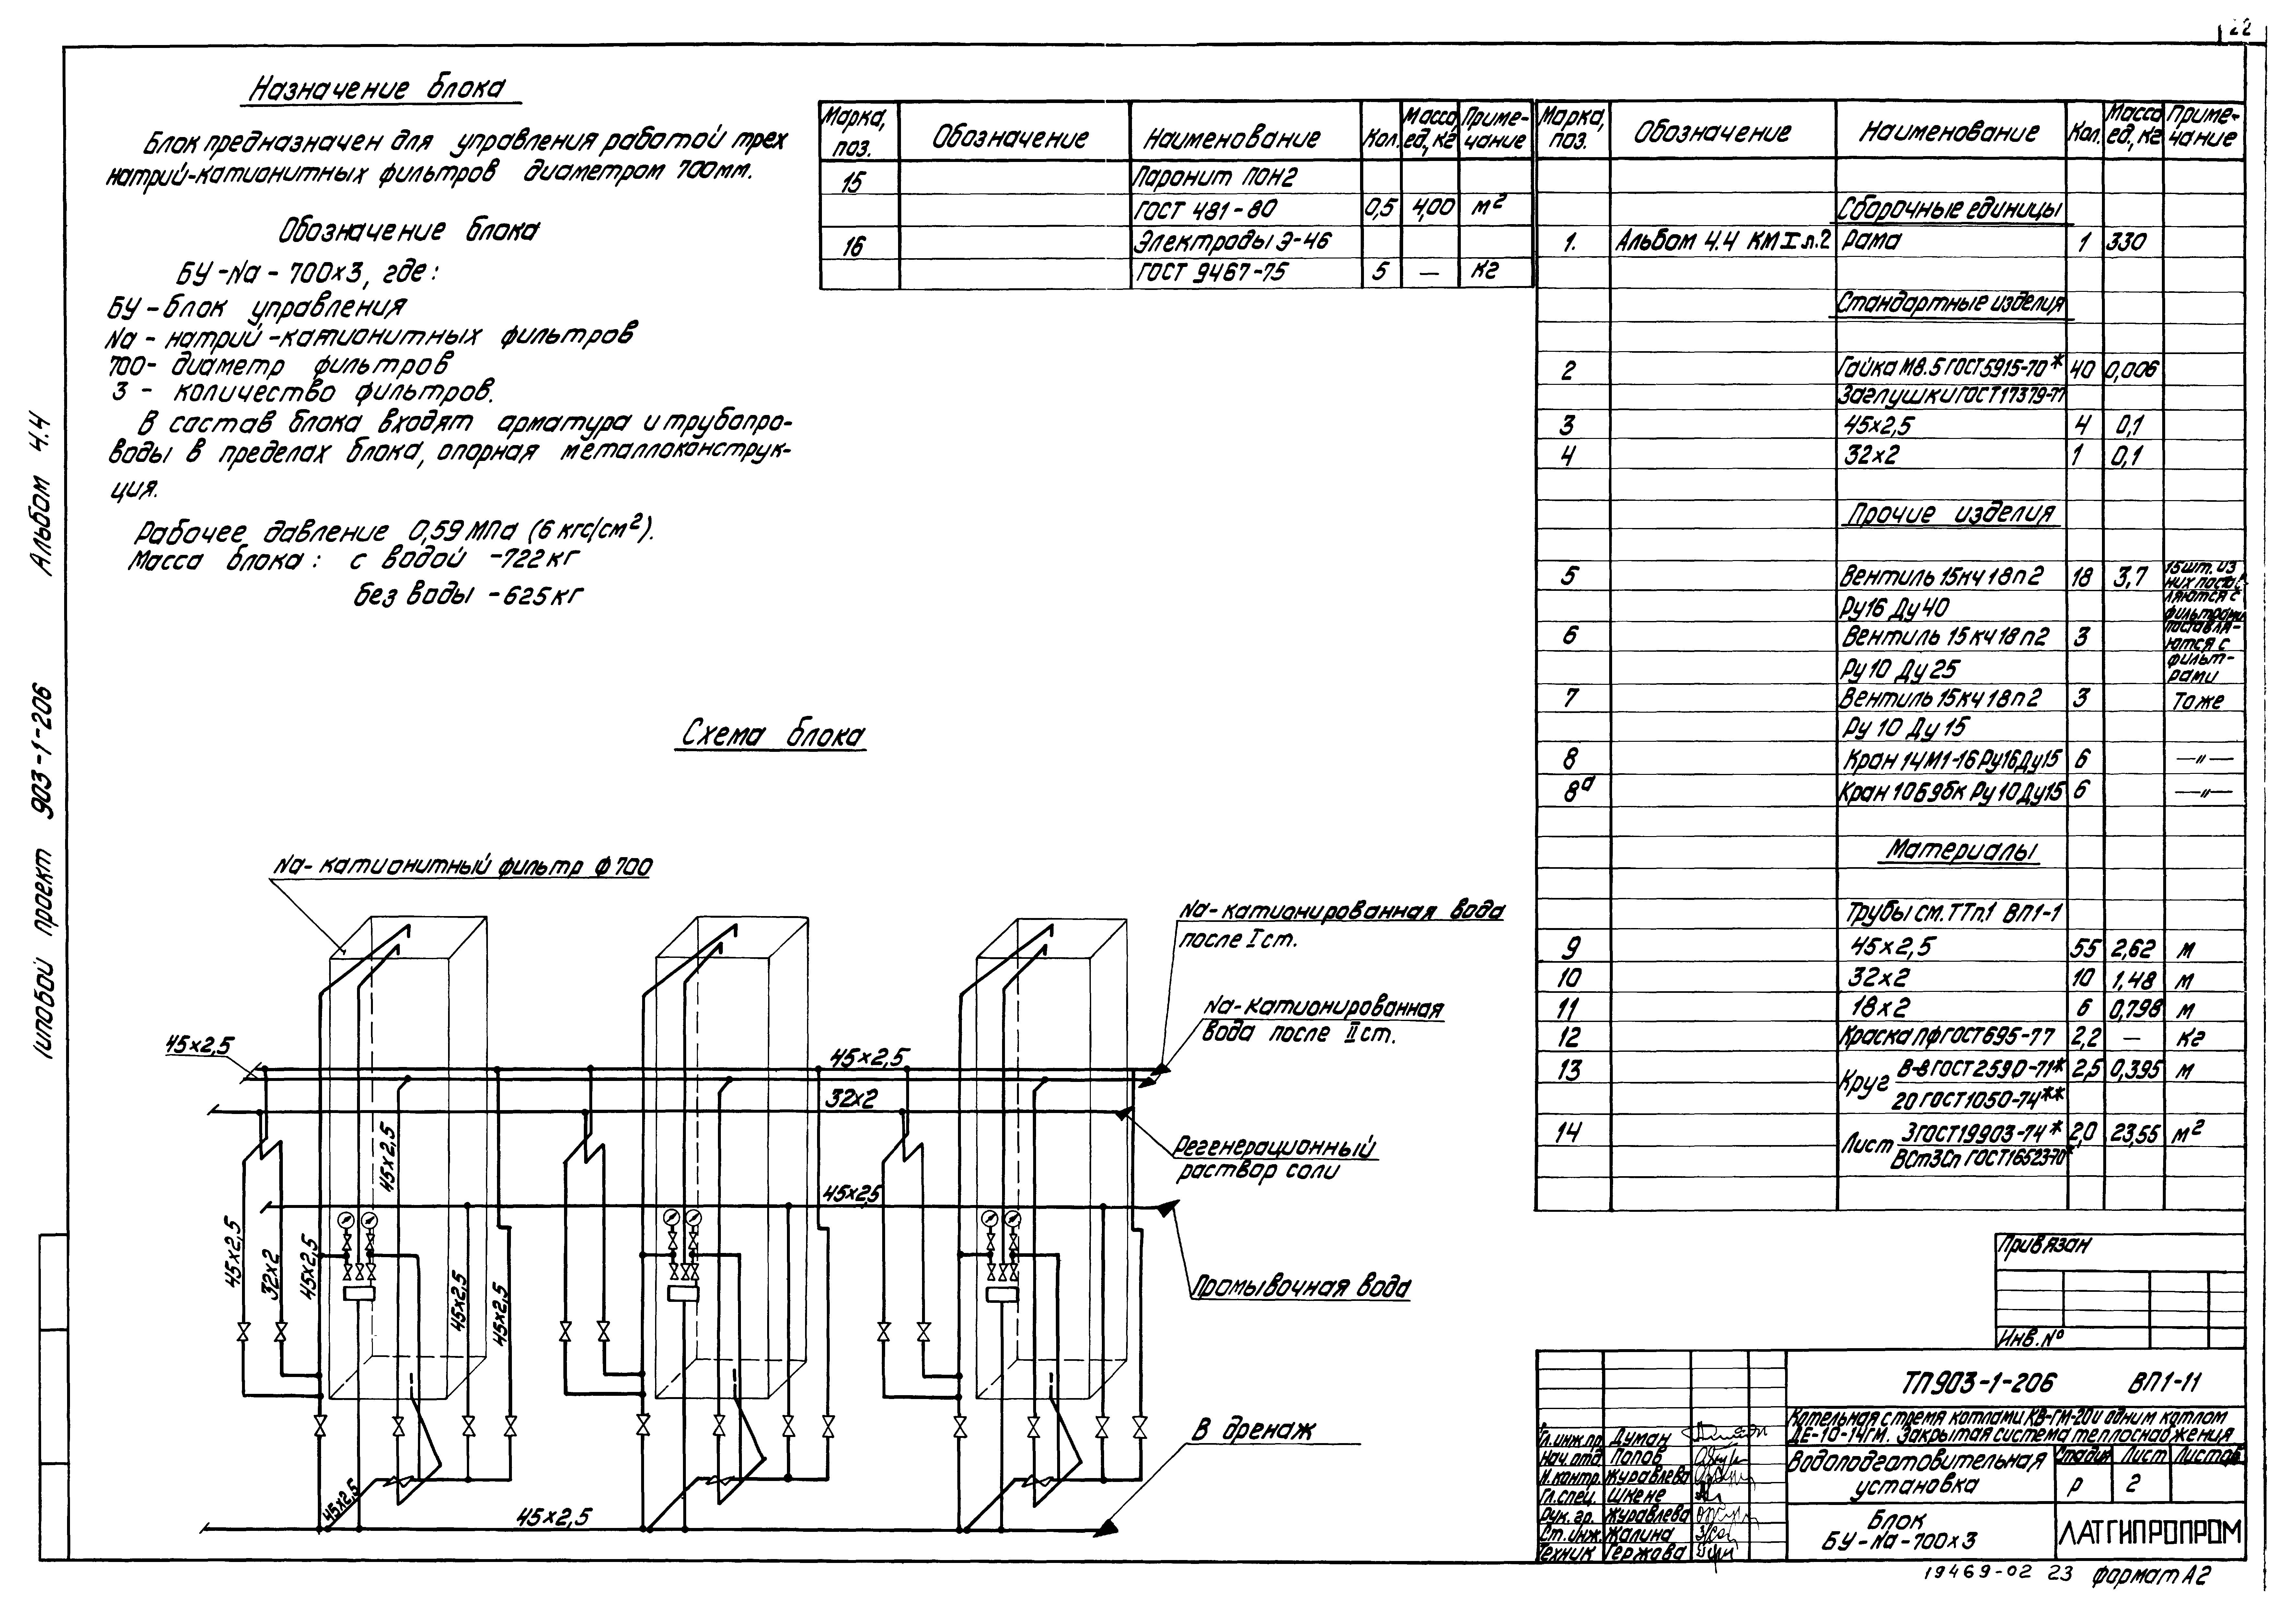 22
Альбом 4.4
Типовой проект 903-1-206
Назначение блока
Блок предназначен для управления работой трех
натрий-катионитных фильтров диаметром 700мм.
Обозначение блока
БУ-Na-700х3, где:
БУ-блок управления
Na - натрий-катионитных фильтров
700- диаметр фильтров
3 - количество фильтров.
В состав блока входят арматура и трубопро-
воды в пределах блока, опорная металлоконструк-
ция.
Рабочее давление 0,59 МПа (6 кгс/см²).
Масса блока: с водой -722кг
без воды -625кг
Марка, поз. Обозначение Наименование Кол. Масса ед., кг Приме-чание
15 Паронит ПОН2
ГОСТ 481-80 0,5 4,00 м²
16 Электроды Э-46
ГОСТ 9467-75 5 — кг
Марка, поз. Обозначение Наименование Кол. Масса ед., кг Приме-чание
Сборочные единицы
1. Альбом 4.4 КМ I л.2 Рама 1 330
Стандартные изделия
2 Гайка М8.5 ГОСТ 5915-70* 40 0,006
Заглушки ГОСТ 17379-77
3 45х2,5 4 0,1
4 32х2 1 0,1
Прочие изделия
5 Вентиль 15кч 18п2 18 3,7 15шт. из них постав-
Ру16 Ду 40 ляются с фильтрами
6 Вентиль 15кч18п2 3 поставля-ются с
Ру 10 Ду 25 фильт-рами
7 Вентиль 15кч 18п2 3 То же
Ру 10 Ду 15
8 Кран 14М1-16 Ру16 Ду15 6 —"—
8а Кран 10Б9бк Ру 10 Ду15 6 —"—
Материалы
Трубы см. ТТп.1 ВП1-1
9 45х2,5 55 2,62 м
10 32х2 10 1,48 м
11 18х2 6 0,798 м
12 Краска ПФ ГОСТ 695-77 2,2 — кг
13 Круг В-8 ГОСТ 2590-71* 2,5 0,395 м
20 ГОСТ 1050-74**
14 Лист 3 ГОСТ 19903-74* 2,0 23,55 м²
ВСт3Сп ГОСТ 16523-70*
Схема блока
Na- катионитный фильтр Ф700
Na- катионированная вода
после I ст.
Na- катионированная
вода после II ст.
45х2,5
45х2,5
32х2
Регенерационный
раствор соли
45х2,5
45х25
45х2,5
32х2
45х2,5
45х2,5
45х2,5
Промывочная вода
В дренаж
45х2,5
45х2,5
Привязан
Инв. №
ТП903-1-206 ВП1-11
Котельная с тремя котлами КВ-ГМ-20 и одним котлом
ДЕ-10-14ГМ. Закрытая система теплоснабжения
Гл.инж.пр. Думан
Нач.отд. Попов
Н.контр. Журавлева
Гл.спец. Шкене
Рук. гр. Журавлева
Ст. инж. Жалина
Техник Гержова
Водоподготовительная
установка
Стадия Лист Листов
Р 2
Блок
БУ-Na-700х3
ЛАТГИПРОПРОМ
19469-02 23 формат А2